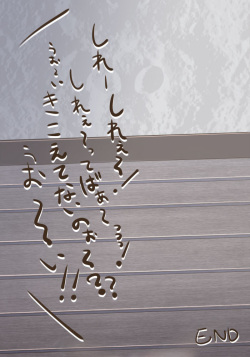 しれーしれぇ〜!
しれぇ〜ってばぁ〜っっ!
うぉーいきこえてないのぉ〜??
うお〜〜い!!
END